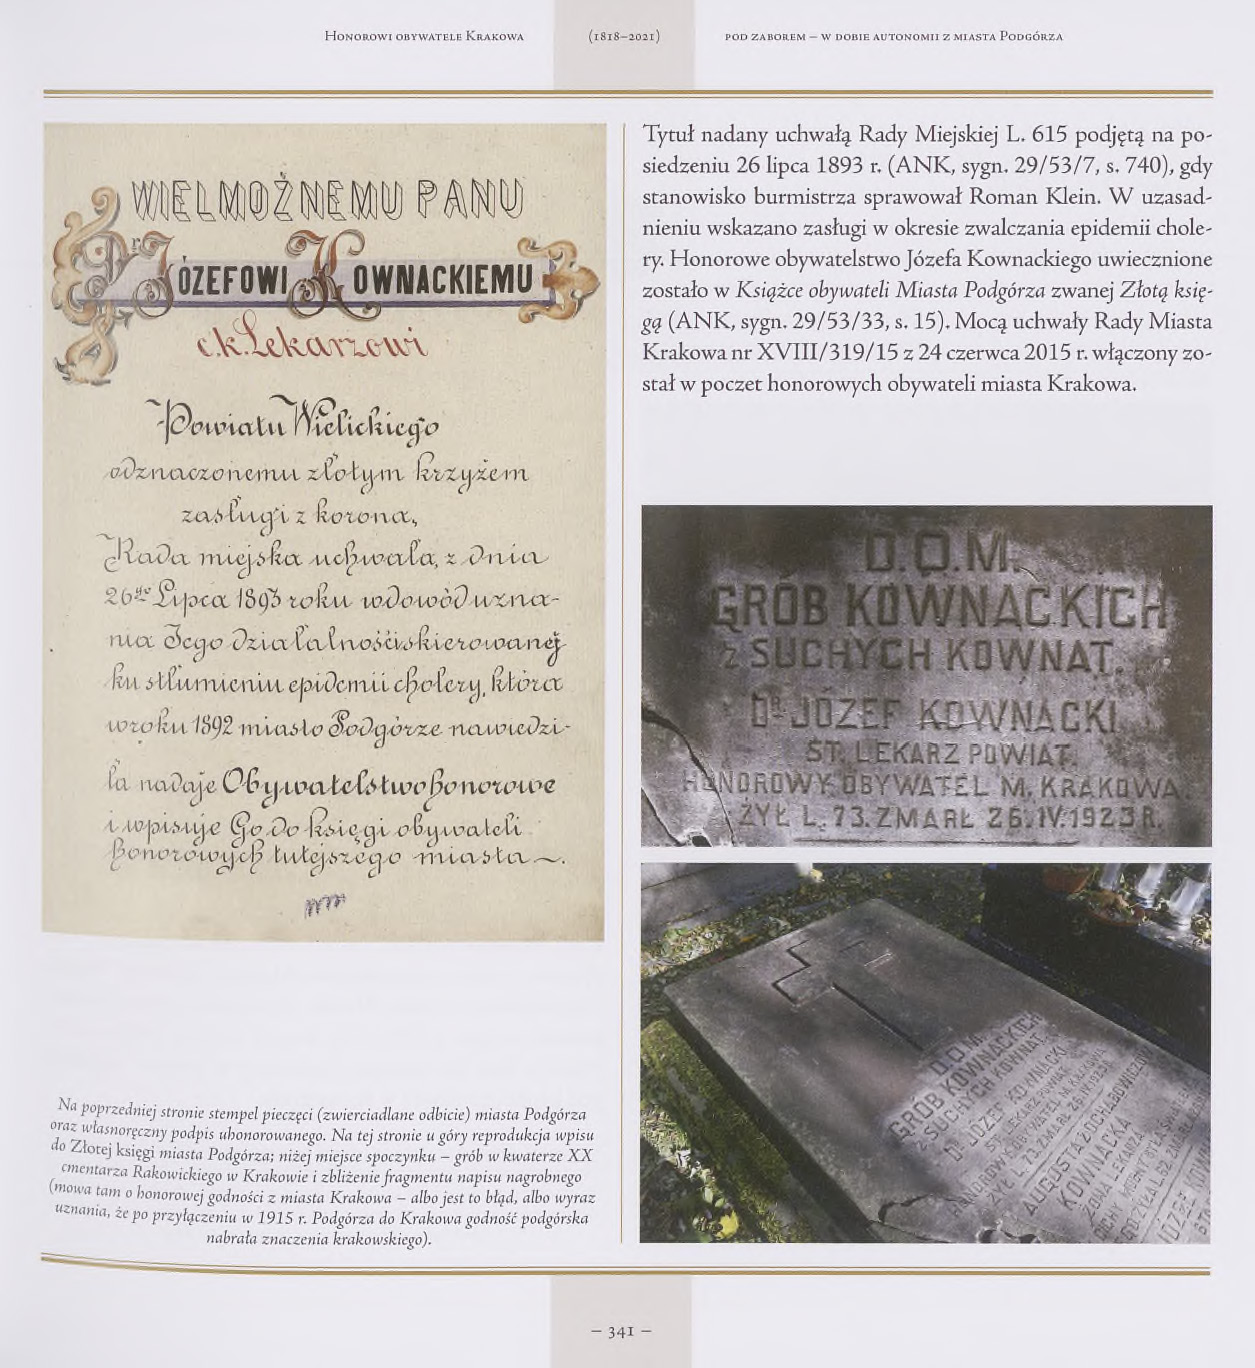 Honorowi obywatele Krakowa (1818–2021) pod zaborem – w dobie autonomii z miasta Podgórza
WIELMOŻNEMU PANU
Dr. JÓZEFOWI KOWNACKIEMU
c.k. Lekarzowi
Powiatu Wielickiego
odznaczonemu złotym krzyżem
zasługi z koroną,
Rada miejska uchwałą z dnia
26go Lipca 1893 roku w dowód uzna-
nia Jego działalności skierowanej
ku stłumieniu epidemii cholery, która
w roku 1892 miasto Podgórze nawiedzi-
ła nadaje Obywatelstwo honorowe
i wpisuje Go do księgi obywateli
honorowych tutejszego miasta —.
Na poprzedniej stronie stempel pieczęci (zwierciadlane odbicie) miasta Podgórza
oraz własnoręczny podpis uhonorowanego. Na tej stronie u góry reprodukcja wpisu
do Złotej księgi miasta Podgórza; niżej miejsce spoczynku – grób w kwaterze XX
cmentarza Rakowickiego w Krakowie i zbliżenie fragmentu napisu nagrobnego
(mowa tam o honorowej godności z miasta Krakowa – albo jest to błąd, albo wyraz
uznania, że po przyłączeniu w 1915 r. Podgórza do Krakowa godność podgórska
nabrała znaczenia krakowskiego).
Tytuł nadany uchwałą Rady Miejskiej L. 615 podjętą na po-
siedzeniu 26 lipca 1893 r. (ANK, sygn. 29/53/7, s. 740), gdy
stanowisko burmistrza sprawował Roman Klein. W uzasad-
nieniu wskazano zasługi w okresie zwalczania epidemii chole-
ry. Honorowe obywatelstwo Józefa Kownackiego uwiecznione
zostało w Książce obywateli Miasta Podgórza zwanej Złotą księ-
gą (ANK, sygn. 29/53/33, s. 15). Mocą uchwały Rady Miasta
Krakowa nr XVIII/319/15 z 24 czerwca 2015 r. włączony zo-
stał w poczet honorowych obywateli miasta Krakowa.
D.O.M.
GRÓB KOWNACKICH
z SUCHYCH KOWNAT.
DR. JÓZEF KOWNACKI
ST. LEKARZ POWIAT.
HONOROWY OBYWATEL M. KRAKOWA
ŻYŁ L. 73. ZMARŁ 26.IV.1923 R.
D.O.M.
GRÓB KOWNACKICH
z SUCHYCH KOWNAT.
DR. JÓZEF KOWNACKI
ST. LEKARZ POWIAT.
HONOROWY OBYWATEL M. KRAKOWA
ŻYŁ L. 73. ZMARŁ 26.IV.1923 R.
AUGUSTA
KOWNACKA
ŻONA LEKARZA
JÓZEF
– 341 –